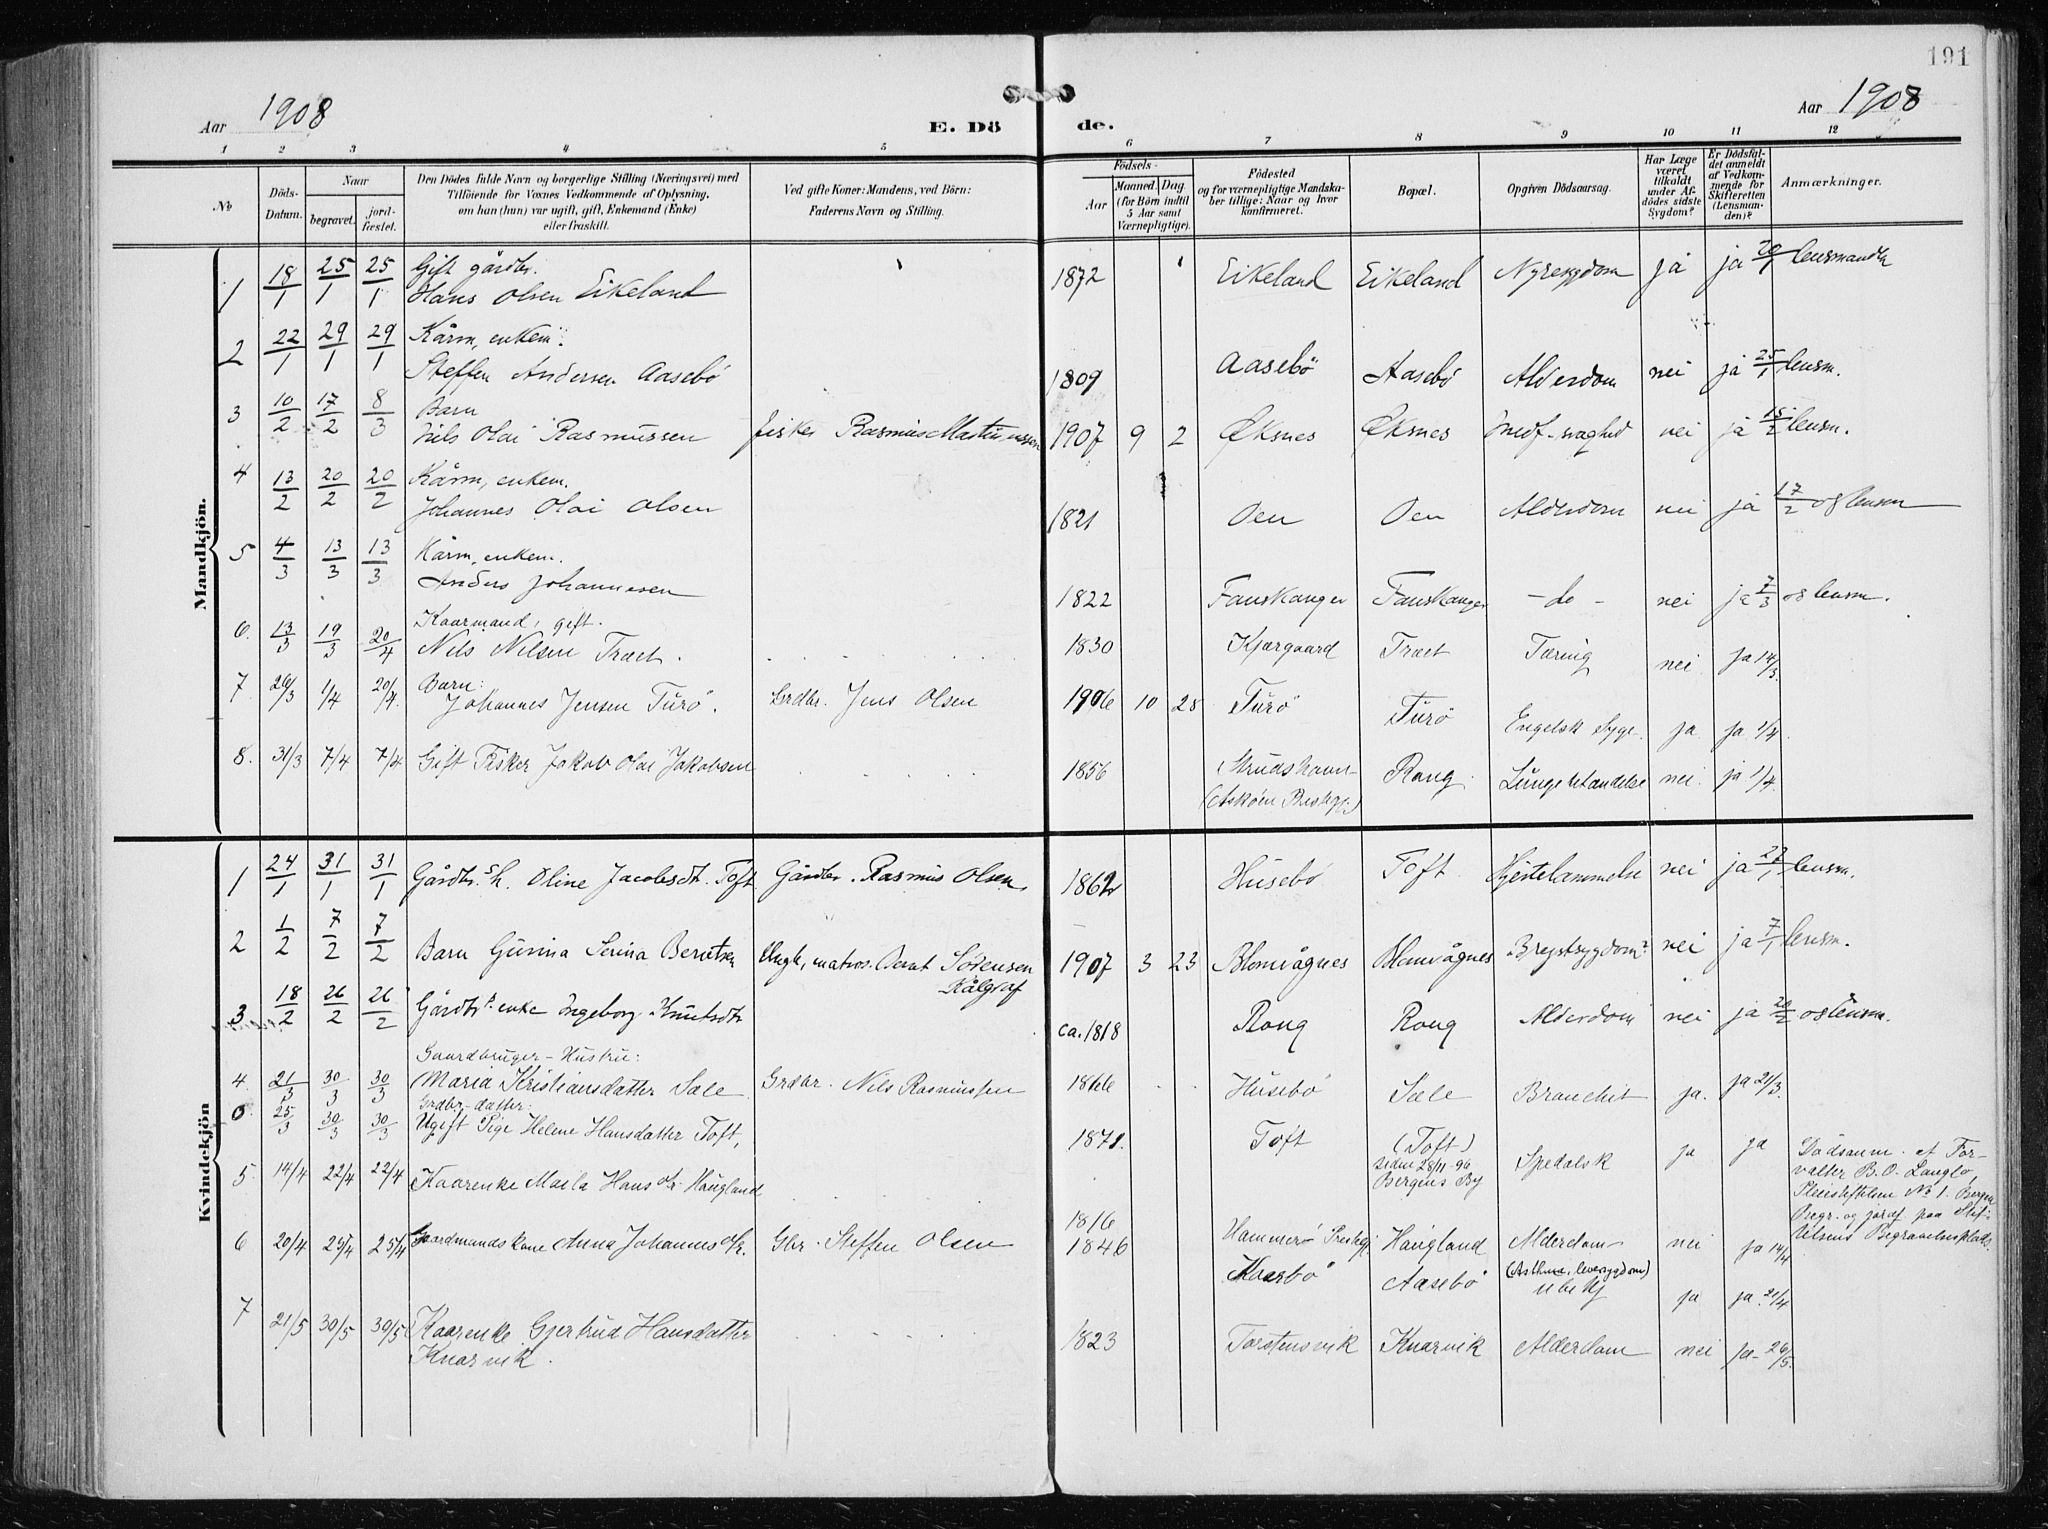 191
Aar 1908
E. Döde.
Aar 1908
1 2 3 4 5 6 7 8 9 10 11 12
No
Döds-Datum.
Naar
begravet. jord-fæstet.
Den Dödes fulde Navn og borgerlige Stilling (Næringsvei) med
Tilföiende for Voxnes Vedkommende af Oplysning,
om han (hun) var ugift, gift, Enkemand (Enke)
eller fraskilt.
Ved gifte Koner: Mandens, ved Börn:
Faderens Navn og Stilling.
Födsels-
Aar Maaned. Dag.
(for Börn indtil
5 Aar samt
Værnepligtige).
Födested
og for værnepligtige Mandska-
ber tillige: Naar og hvor
konfirmeret.
Bopæl.
Opgiven Dödsaarsag.
Har Læge
været
tilkaldt
under Af-
dödes sidste
Sygdom?
Er Dödsfal-
det anmeldt
af Vedkom-
mende for
Skifteretten
(Lensman-
den)?
Anmærkninger.
Mandkjön.
1 18/1 25/1 25/1 Gift gårdbr.
Hans Olsen Eikeland 1872 Eikeland Eikeland Nyresygdom ja ja 20/1
2 22/1 29/1 29/1 Kårm, enkem.
Steffen Andersen Aasebö 1809 Aasebö Aasebö Alderdom nei ja 25/1 lensm.
3 10/2 17/2 8/3 Barn
Nils Olai Rasmussen fisker Rasmus Martinussen 1907 9 2 Øksnes Øksnes medf. svaghed nei ja 15/2 lensm.
4 13/2 20/2 20/2 Kårm, enkem.
Johannes Olai Olsen 1821 Oen Oen Alderdom nei ja 17/2 og lensm
5 4/3 13/3 13/3 Kårm, enkem.
Anders Johannesen 1822 Fanskanger Fanskanger - do - nei ja 7/3 og lensm.
6. 13/3 19/3 20/4 Kaarmand, gift.
Nils Nilsen Træt. 1830 Kjærgaard Træt Tæring nei ja 14/3.
7. 26/3 1/4 20/4. Barn:
Johannes Jensen Turö. Grdbr. Jens Olsen 1906 10 28 Turö Turö Engelsk Syge ja ja 1/4.
8. 31/3 7/4 7/4 Gift Fisker Jakob Olai Jakobsen 1856
(Askøen Prestegj.) Rong Lungebetændelse nei. ja 1/4.
Kvindekjön
1 24/1 31/1 31/1 Gårdbr.s h. Oline Jacobsdt. Toft Gårdbr. Rasmus Olsen 1862 Husebö Toft Hjertelammelse nei ja 27/1 lensm.
2 1/2 7/2 7/2 Barn Gurina Serina Berntsen Ungk, matros Bernt Sörensen
Kålgraf 1907 3 23 Blomvågnes Blomvågnes Brystsygdom? nei ja 7/1 lensm.
3 18/2 26/2 26/2 Gårdbr enke Ingeborg Knutsdtr ca. 1818 Rong Rong Alderdom nei ja 20/2 og lensm.
Gaardbruger-Hustru:
4. 21/3 30/3 30/3 Maria Kristiansdatter Sæle Grdbr. Nils Rasmussen 1866 Husebö Sæle Bronchit ja. ja 21/3.
Grdbr-datter:
25/3 30/3 30/3 Ugift Pige Helene Hansdatter Toft, 1871. Toft (Toft)
siden 28/11-96
Bergens By Spedalsk ja ja Dödsanm. af For-
valter B. O. Langlo,
Pleiestiftelsen No 1. Bergen
Begr. og jordf paa Stif-
telsens Begravelsesplads.
5. 14/4 22/4 22/4 Kaarenke Marta Hans dtr Haugland 1816 Hammers Prestegj. Haugland Alderdom nei ja 14/4
6 20/4 25/4 25/4 Gaardmandskone Anna Johannesdtr. Gbr. Steffen Olsen 1846 Aasebö (Asthma, leversygdom)
ubekj ja ja 21/4
7 21/5 30/5 30/5 Kaarenke Gjertrud Hansdatter
Knarvik. 1823 Torstensvik Knarvik Alderdom nei ja 26/5.